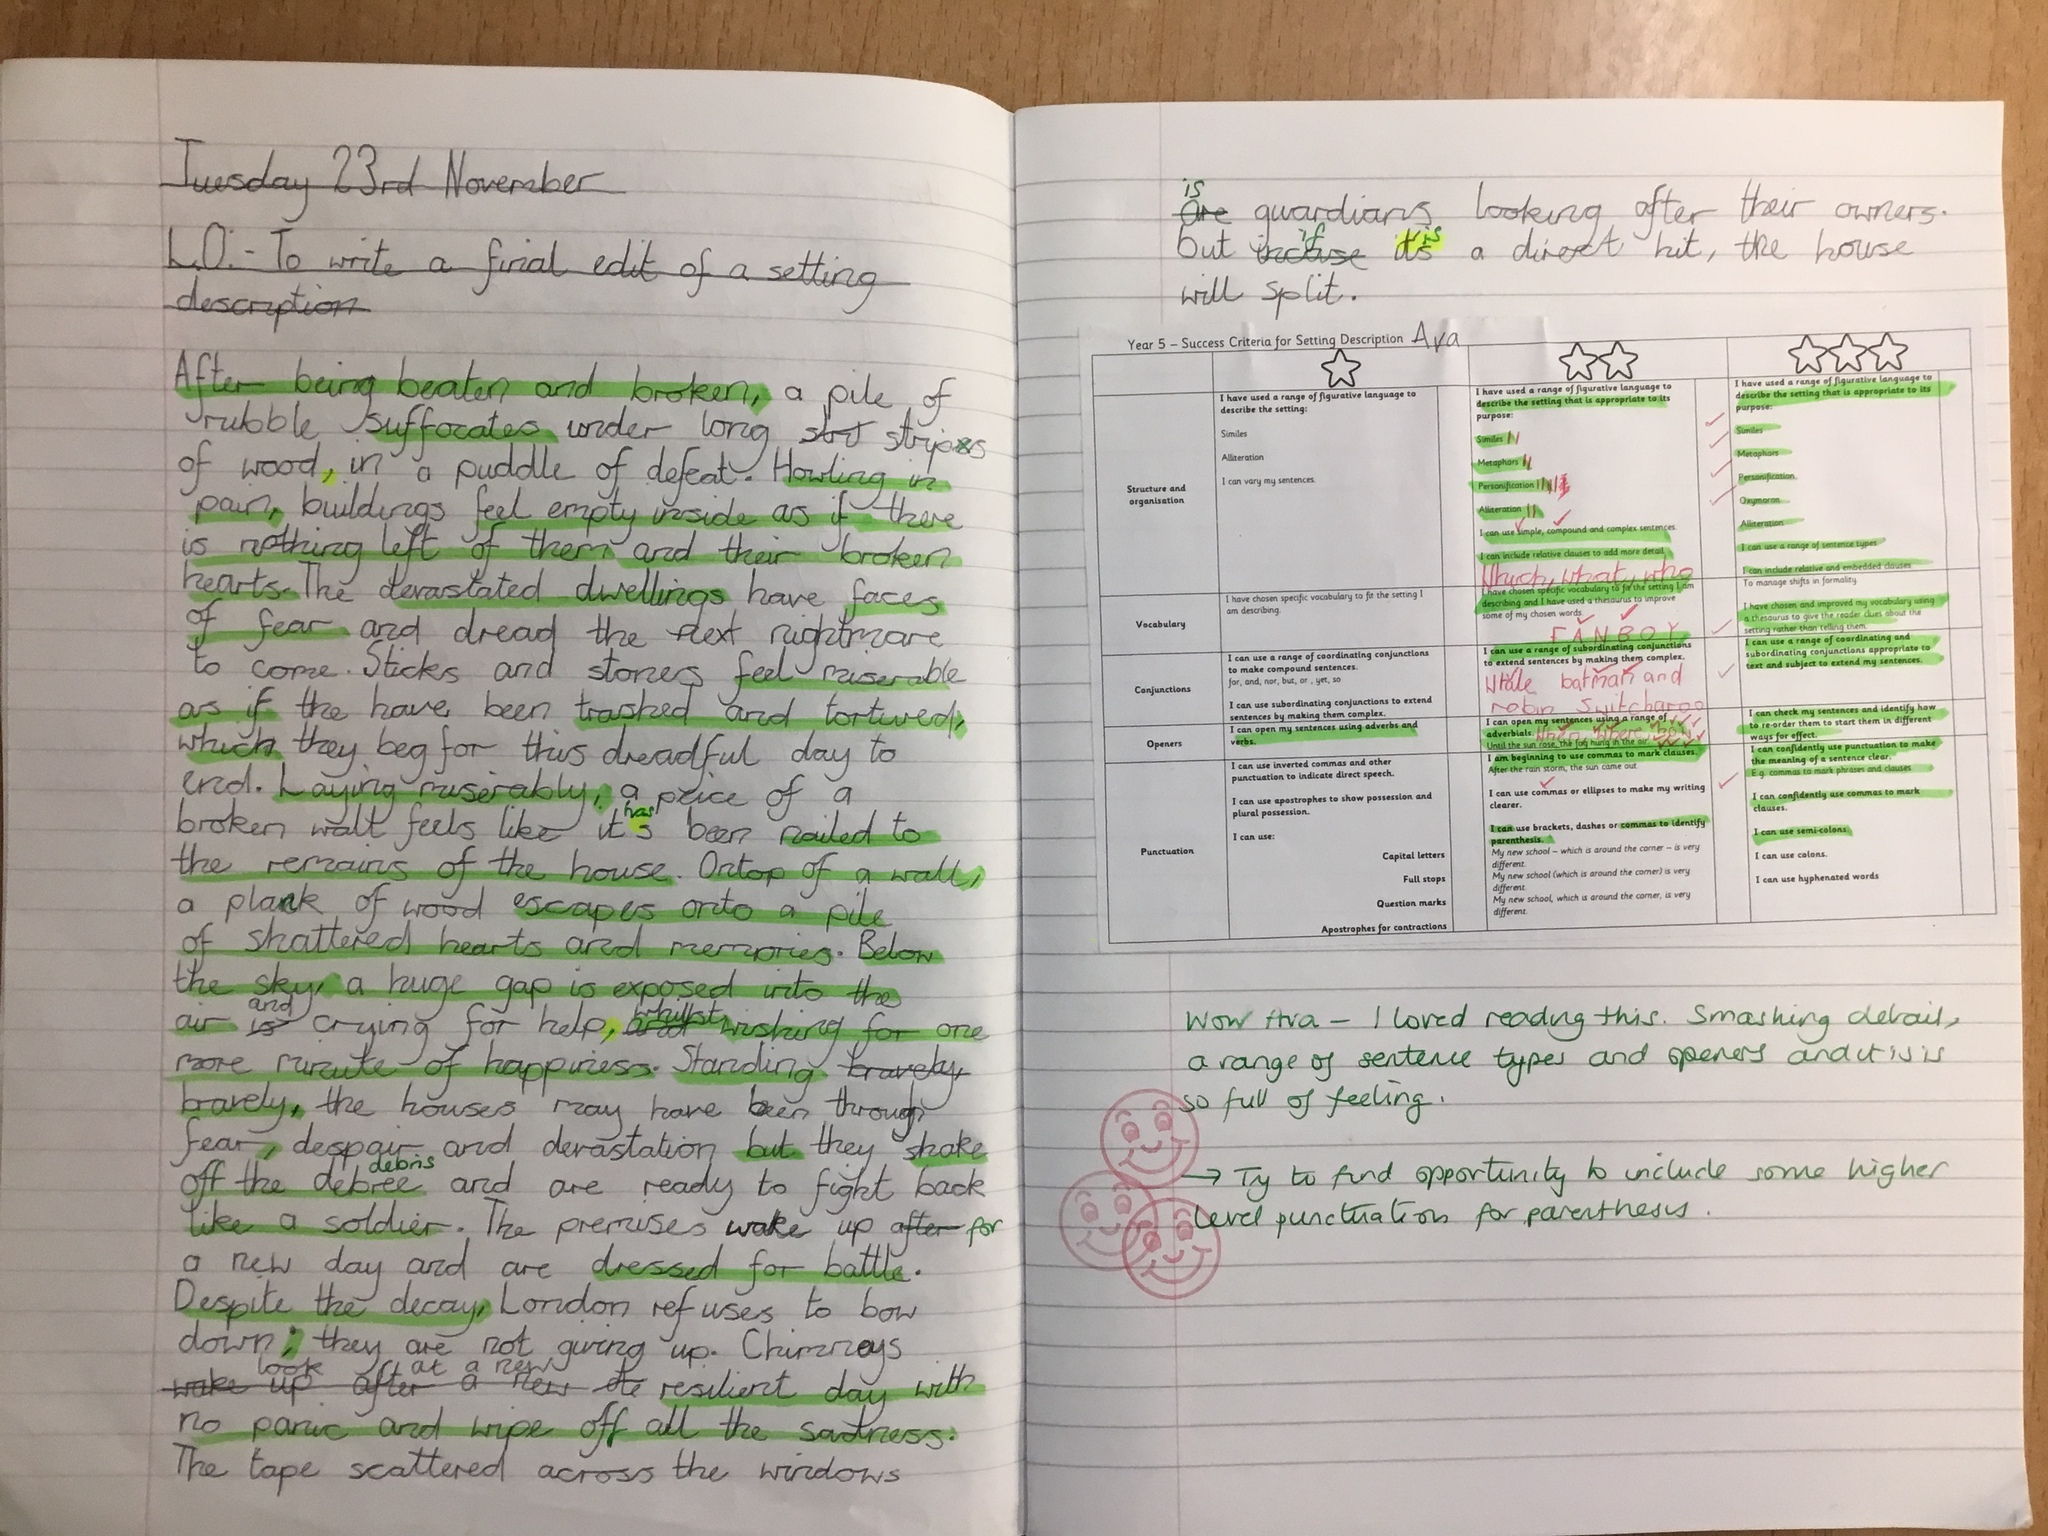 Tuesday 23rd November
L.O:- To write a final edit of a setting
description
After being beaten and broken, a pile of
rubble suffocates under long strips
of wood, in a puddle of defeat. Howling in
pain, buildings feel empty inside as if there
is nothing left of them and their broken
hearts. The devastated dwellings have faces
of fear and dread the next nightmare
to come. Sticks and stones feel miserable
as if the have been trashed and tortured,
which they beg for this dreadful day to
end. Laying miserably, a peice of a
has
broken wall feels like it's been nailed to
the remains of the house. Ontop of a wall,
a plank of wood escapes onto a pile
of shattered hearts and memories. Below
the sky, a huge gap is exposed into the
and whilst
air is crying for help, and wishing for one
more minute of happiness. Standing bravely,
bravely, the houses may have been through
fear, despair and devastation but they shake
debris
off the debree and are ready to fight back
like a soldier. The premises wake up after for
a new day and are dressed for battle.
Despite the decay, London refuses to bow
down; they are not giving up. Chimneys
look at a new
wake up after a new resilient day with
no panic and wipe off all the sadness.
The tape scattered across the windows
is
are guardians looking after their owners.
if is
but incase it's a direct hit, the house
will split.
Year 5 – Success Criteria for Setting Description Ava
Structure and
organisation
I have used a range of figurative language to
describe the setting:
Similes
Alliteration
I can vary my sentences.
I have used a range of figurative language to
describe the setting that is appropriate to its
purpose:
Similes
Metaphors
Personification
Alliteration
I can use simple, compound and complex sentences.
I can include relative clauses to add more detail
Which, what, who
I have used a range of figurative language to
describe the setting that is appropriate to its
purpose:
Similes
Metaphors
Personification
Oxymoron
Alliteration
I can use a range of sentence types
I can include relative and embedded clauses
To manage shifts in formality.
Vocabulary
I have chosen specific vocabulary to fit the setting I
am describing.
I have chosen specific vocabulary to fit the setting I am
describing and I have used a thesaurus to improve
some of my chosen words.
I have chosen and improved my vocabulary using
a thesaurus to give the reader clues about the
setting rather than telling them.
Conjunctions
I can use a range of coordinating conjunctions
to make compound sentences.
for, and, nor, but, or, yet, so
I can use subordinating conjunctions to extend
sentences by making them complex.
FANBOY
I can use a range of subordinating conjunctions
to extend sentences by making them complex.
While batman and
robin Switcharoo
I can use a range of coordinating and
subordinating conjunctions appropriate to
text and subject to extend my sentences.
Openers
I can open my sentences using adverbs and
verbs.
I can open my sentences using a range of
adverbials.
Until the sun rose, the fog hung in the air
I can check my sentences and identify how
to re-order them to start them in different
ways for effect.
Punctuation
I can use inverted commas and other
punctuation to indicate direct speech.
I can use apostrophes to show possession and
plural possession.
I can use:
Capital letters
Full stops
Question marks
Apostrophes for contractions
I am beginning to use commas to mark clauses.
After the rain storm, the sun came out.
I can use commas or ellipses to make my writing
clearer.
I can use brackets, dashes or commas to identify
parenthesis.
My new school – which is around the corner – is very
different.
My new school (which is around the corner) is very
different.
My new school, which is around the corner, is very
different.
I can confidently use punctuation to make
the meaning of a sentence clear.
E.g. commas to mark phrases and clauses
I can confidently use commas to mark
clauses.
I can use semi-colons.
I can use colons.
I can use hyphenated words
Wow Ava – I loved reading this. Smashing detail,
a range of sentence types and openers and it is
so full of feeling.
→ Try to find opportunity to include some higher
level punctuation for parenthesis.